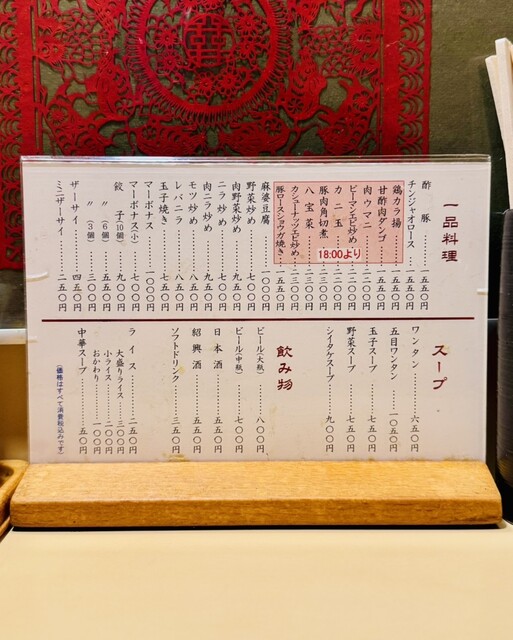 一品料理
酢豚……一五五〇円
チンジャオロース…一五五〇円
鶏カラ揚……一五五〇円
甘酢肉ダンゴ……一五五〇円
肉ウマニ……
ピーマンエビ炒め……
カニ玉……
豚肉角切煮……
八宝菜……
カシューナッツエビ炒め…
豚ロースショウガ焼き…一五五〇円
18:00より
麻婆豆腐……一〇〇〇円
野菜炒め……七〇〇円
肉野菜炒め……九五〇円
ニラ炒め……七五〇円
肉ニラ炒め……九五〇円
モツ炒め……八五〇円
レバニラ……八五〇円
玉子焼き……七五〇円
マーボナス……一〇〇〇円
マーボナス(小)……七〇〇円
餃子(10個)……九〇〇円
〃(6個)……五五〇円
〃(3個)……三〇〇円
ザーサイ……四五〇円
ミニザーサイ……二五〇円
スープ
ワンタン……六五〇円
五目ワンタン……一〇五〇円
玉子スープ……七五〇円
野菜スープ……七五〇円
シイタケスープ……九〇〇円
飲み物
ビール(大瓶)……八〇〇円
ビール(中瓶)……七〇〇円
日本酒……五五〇円
紹興酒……五五〇円
ソフトドリンク……三五〇円
ライス……二五〇円
大盛りライス……三〇〇円
小ライス……二〇〇円
おかわり……一〇〇円
中華スープ……五〇円
(価格はすべて消費税込みです)